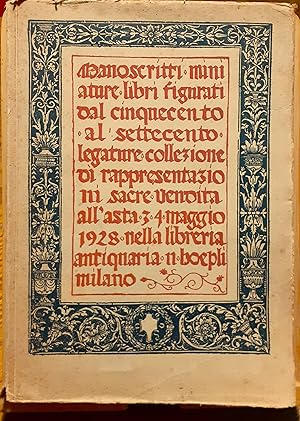 Manoscritti · mini
ature · libri figurati
dal cinquecento
· al settecento ·
legature · collezione
di rappresentazio
ni sacre · vendita
all'asta · 3 · 4 · maggio
1928 · nella libreria
antiquaria · n · hoepli
milano ·